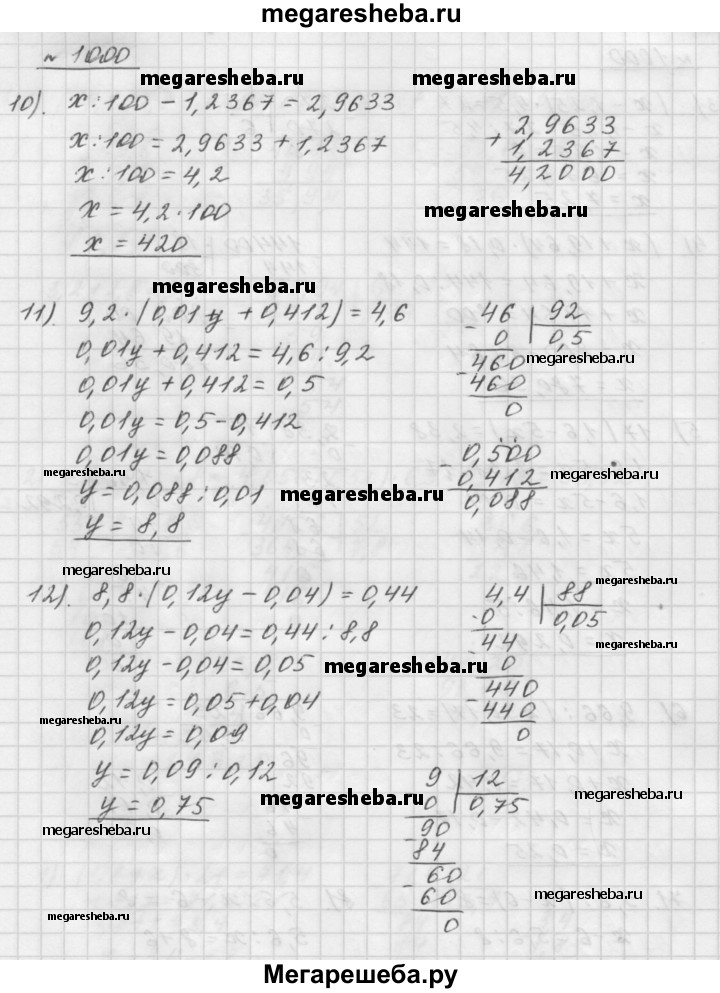 megaresheba.ru
№ 1000
megaresheba.ru megaresheba.ru
10). x:100 - 1,2367 = 2,9633
x:100 = 2,9633 + 1,2367
x:100 = 4,2
x = 4,2·100
x = 420
+ 2,9633
1,2367
4,2000
megaresheba.ru
megaresheba.ru
11). 9,2·(0,01y + 0,412) = 4,6
0,01y + 0,412 = 4,6:9,2
0,01y + 0,412 = 0,5
0,01y = 0,5 - 0,412
0,01y = 0,088
megaresheba.ru
y = 0,088:0,01
y = 8,8
- 46 | 92
0 | 0,5
- 460
460
0
megaresheba.ru
- 0,500
0,412
0,088
megaresheba.ru
megaresheba.ru
megaresheba.ru
megaresheba.ru
12). 8,8·(0,12y - 0,04) = 0,44
0,12y - 0,04 = 0,44:8,8
0,12y - 0,04 = 0,05
0,12y = 0,05 + 0,04
0,12y = 0,09
y = 0,09:0,12
y = 0,75
4,4 | 88
- 0 | 0,05
- 44
0
- 440
440
0
megaresheba.ru
megaresheba.ru
megaresheba.ru
megaresheba.ru
9 | 12
- 0 | 0,75
- 90
84
- 60
60
0
megaresheba.ru
megaresheba.ru
megaresheba.ru
megaresheba.ru
Мегарешеба.ру